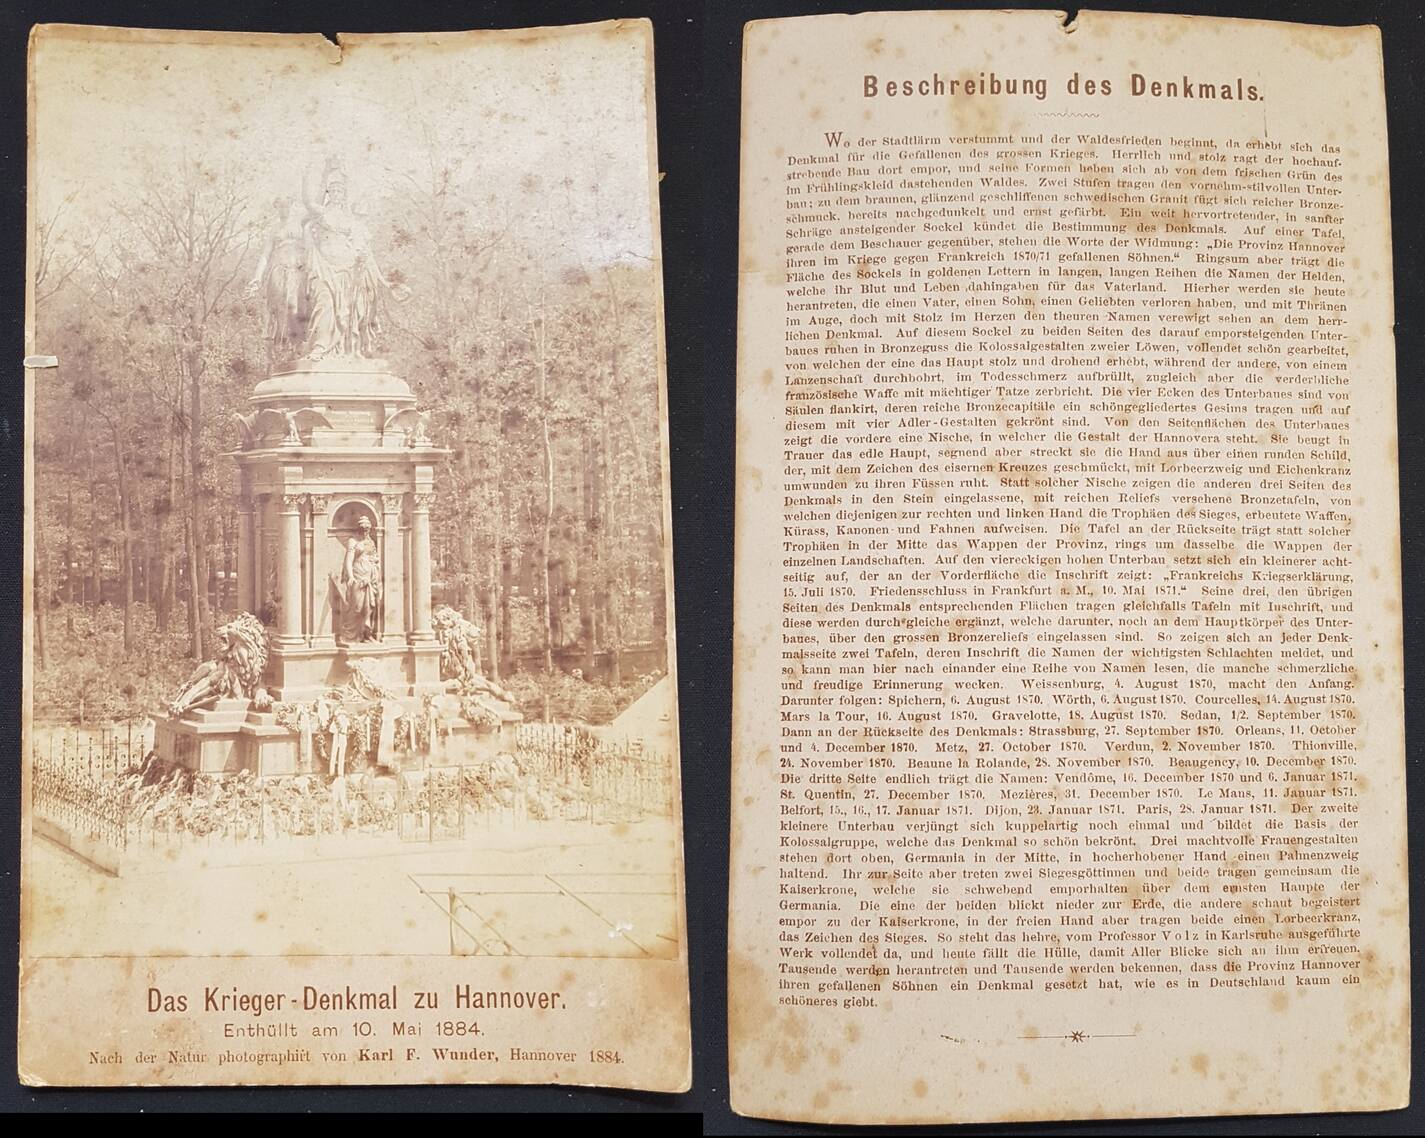 Das Krieger-Denkmal zu Hannover.
Enthüllt am 10. Mai 1884.
Nach der Natur photographirt von Karl F. Wunder, Hannover 1884.
Beschreibung des Denkmals.
Wo der Stadtlärm verstummt und der Waldesfrieden beginnt, da erhebt sich das
Denkmal für die Gefallenen des grossen Krieges. Herrlich und stolz ragt der hochauf-
strebende Bau dort empor, und seine Formen heben sich ab von dem frischen Grün des
im Frühlingskleid dastehenden Waldes. Zwei Stufen tragen den vornehm-stilvollen Unter-
bau; zu dem braunen, glänzend geschliffenen schwedischen Granit fügt sich reicher Bronze-
schmuck, bereits nachgedunkelt und ernst gefärbt. Ein weit hervortretender, in sanfter
Schräge ansteigender Sockel kündet die Bestimmung des Denkmals. Auf einer Tafel,
gerade dem Beschauer gegenüber, stehen die Worte der Widmung: „Die Provinz Hannover
ihren im Kriege gegen Frankreich 1870/71 gefallenen Söhnen.“ Ringsum aber trägt die
Fläche des Sockels in goldenen Lettern in langen, langen Reihen die Namen der Helden,
welche ihr Blut und Leben dahingaben für das Vaterland. Hierher werden sie heute
herantreten, die einen Vater, einen Sohn, einen Geliebten verloren haben, und mit Thränen
im Auge, doch mit Stolz im Herzen den theuren Namen verewigt sehen an dem herr-
lichen Denkmal. Auf diesem Sockel zu beiden Seiten des darauf emporsteigenden Unter-
baues ruhen in Bronzeguss die Kolossalgestalten zweier Löwen, vollendet schön gearbeitet,
von welchen der eine das Haupt stolz und drohend erhebt, während der andere, von einem
Lanzenschaft durchbohrt, im Todesschmerz aufbrüllt, zugleich aber die verderbliche
französische Waffe mit mächtiger Tatze zerbricht. Die vier Ecken des Unterbaues sind von
Säulen flankirt, deren reiche Bronzecapitäle ein schöngegliedertes Gesims tragen und auf
diesem mit vier Adler-Gestalten gekrönt sind. Von den Seitenflächen des Unterbaues
zeigt die vordere eine Nische, in welcher die Gestalt der Hannovera steht. Sie beugt in
Trauer das edle Haupt, segnend aber streckt sie die Hand aus über einen runden Schild,
der, mit dem Zeichen des eisernen Kreuzes geschmückt, mit Lorbeerzweig und Eichenkranz
umwunden zu ihren Füssen ruht. Statt solcher Nische zeigen die anderen drei Seiten des
Denkmals in den Stein eingelassene, mit reichen Reliefs versehene Bronzetafeln, von
welchen diejenigen zur rechten und linken Hand die Trophäen des Sieges, erbeutete Waffen,
Kürass, Kanonen und Fahnen aufweisen. Die Tafel an der Rückseite trägt statt solcher
Trophäen in der Mitte das Wappen der Provinz, rings um dasselbe die Wappen der
einzelnen Landschaften. Auf den viereckigen hohen Unterbau setzt sich ein kleinerer acht-
seitig auf, der an der Vorderfläche die Inschrift zeigt: „Frankreichs Kriegserklärung,
15. Juli 1870. Friedensschluss in Frankfurt a. M., 10. Mai 1871.“ Seine drei, den übrigen
Seiten des Denkmals entsprechenden Flächen tragen gleichfalls Tafeln mit Inschrift, und
diese werden durch gleiche ergänzt, welche darunter, noch an dem Hauptkörper des Unter-
baues, über den grossen Bronzereliefs eingelassen sind. So zeigen sich an jeder Denk-
malsseite zwei Tafeln, deren Inschrift die Namen der wichtigsten Schlachten meldet, und
so kann man hier nach einander eine Reihe von Namen lesen, die manche schmerzliche
und freudige Erinnerung wecken. Weissenburg, 4. August 1870, macht den Anfang.
Darunter folgen: Spichern, 6. August 1870. Wörth, 6. August 1870. Courcelles, 14. August 1870.
Mars la Tour, 16. August 1870. Gravelotte, 18. August 1870. Sedan, 1/2. September 1870.
Dann an der Rückseite des Denkmals: Strassburg, 27. September 1870. Orleans, 11. October
und 4. December 1870. Metz, 27. October 1870. Verdun, 2. November 1870. Thionville,
24. November 1870. Beaune la Rolande, 28. November 1870. Beaugency, 10. December 1870.
Die dritte Seite endlich trägt die Namen: Vendôme, 16. December 1870 und 6. Januar 1871.
St. Quentin, 27. December 1870. Mezières, 31. December 1870. Le Mans, 11. Januar 1871.
Belfort, 15., 16., 17. Januar 1871. Dijon, 23. Januar 1871. Paris, 28. Januar 1871. Der zweite
kleinere Unterbau verjüngt sich kuppelartig noch einmal und bildet die Basis der
Kolossalgruppe, welche das Denkmal so schön bekrönt. Drei machtvolle Frauengestalten
stehen dort oben, Germania in der Mitte, in hocherhobener Hand einen Palmenzweig
haltend. Ihr zur Seite aber treten zwei Siegesgöttinnen und beide tragen gemeinsam die
Kaiserkrone, welche sie schwebend emporhalten über dem ernsten Haupte der
Germania. Die eine der beiden blickt nieder zur Erde, die andere schaut begeistert
empor zu der Kaiserkrone, in der freien Hand aber tragen beide einen Lorbeerkranz,
das Zeichen des Sieges. So steht das hehre, vom Professor Volz in Karlsruhe ausgeführte
Werk vollendet da, und heute fällt die Hülle, damit Aller Blicke sich an ihm erfreuen.
Tausende werden herantreten und Tausende werden bekennen, dass die Provinz Hannover
ihren gefallenen Söhnen ein Denkmal gesetzt hat, wie es in Deutschland kaum ein
schöneres giebt.